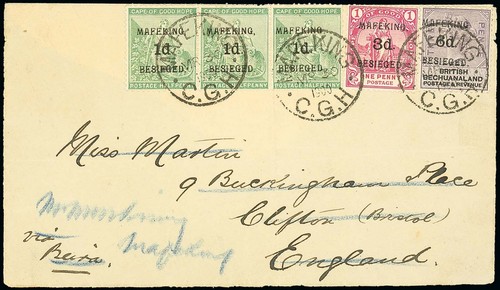 CAPE OF GOOD HOPE CAPE OF GOOD HOPE CAPE OF GOOD HOPE
MAFEKING, MAFEKING, MAFEKING, MAFEKING MAFEKING
1d 1d 1d 3d 6d
BESIEGED. BESIEGED. BESIEGED. BESIEGED. BESIEGED.
POSTAGE HALFPENNY HALFPENNY HALFPENNY
ONE PENNY
POSTAGE
BRITISH
BECHUANALAND
POSTAGE & REVENUE
MAFEKING
C.G.H
MAFEKING
1900
C.G.H
MAFEKING
C.G.H
Miss Martin
9 Buckingham Place
Clifton (Bristol)
England.
via
Beira.
Mafeking